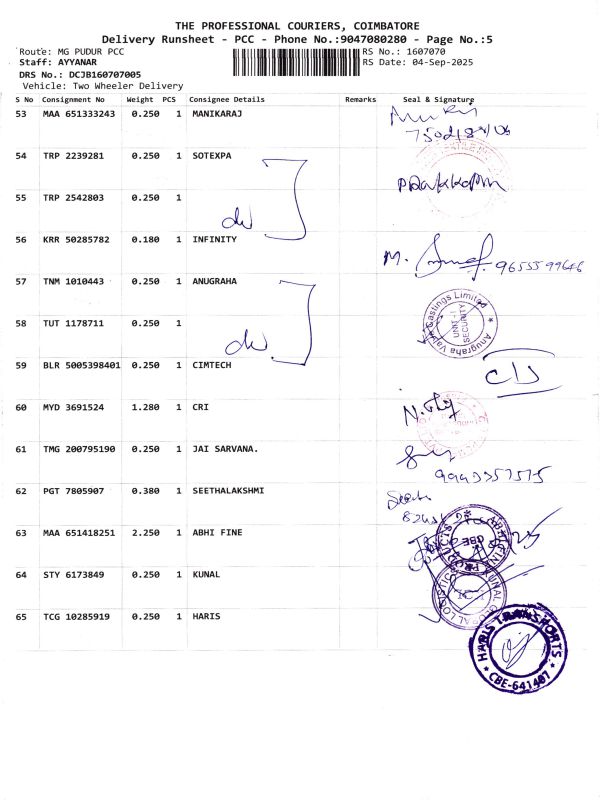 THE PROFESSIONAL COURIERS, COIMBATORE
Delivery Runsheet - PCC - Phone No.:9047080280 - Page No.:5
Route: MG PUDUR PCC
RS No.: 1607070
Staff: AYYANAR
RS Date: 04-Sep-2025
DRS No.: DCJB160707005
Vehicle: Two Wheeler Delivery
S No Consignment No Weight PCS Consignee Details Remarks Seal & Signature
53 MAA 651333243 0.250 1 MANIKARAJ
54 TRP 2239281 0.250 1 SOTEXPA
55 TRP 2542803 0.250 1
56 KRR 50285782 0.180 1 INFINITY
M. 9655599646
57 TNM 1010443 0.250 1 ANUGRAHA
Anugraha Valve Castings Limited
UNIT-I
SECURITY
58 TUT 1178711 0.250 1
59 BLR 5005398401 0.250 1 CIMTECH
60 MYD 3691524 1.280 1 CRI
61 TMG 200795190 0.250 1 JAI SARVANA.
62 PGT 7805907 0.380 1 SEETHALAKSHMI
63 MAA 651418251 2.250 1 ABHI FINE
64 STY 6173849 0.250 1 KUNAL
65 TCG 10285919 0.250 1 HARIS
HARIS TRANSPORTS
CBE-641407